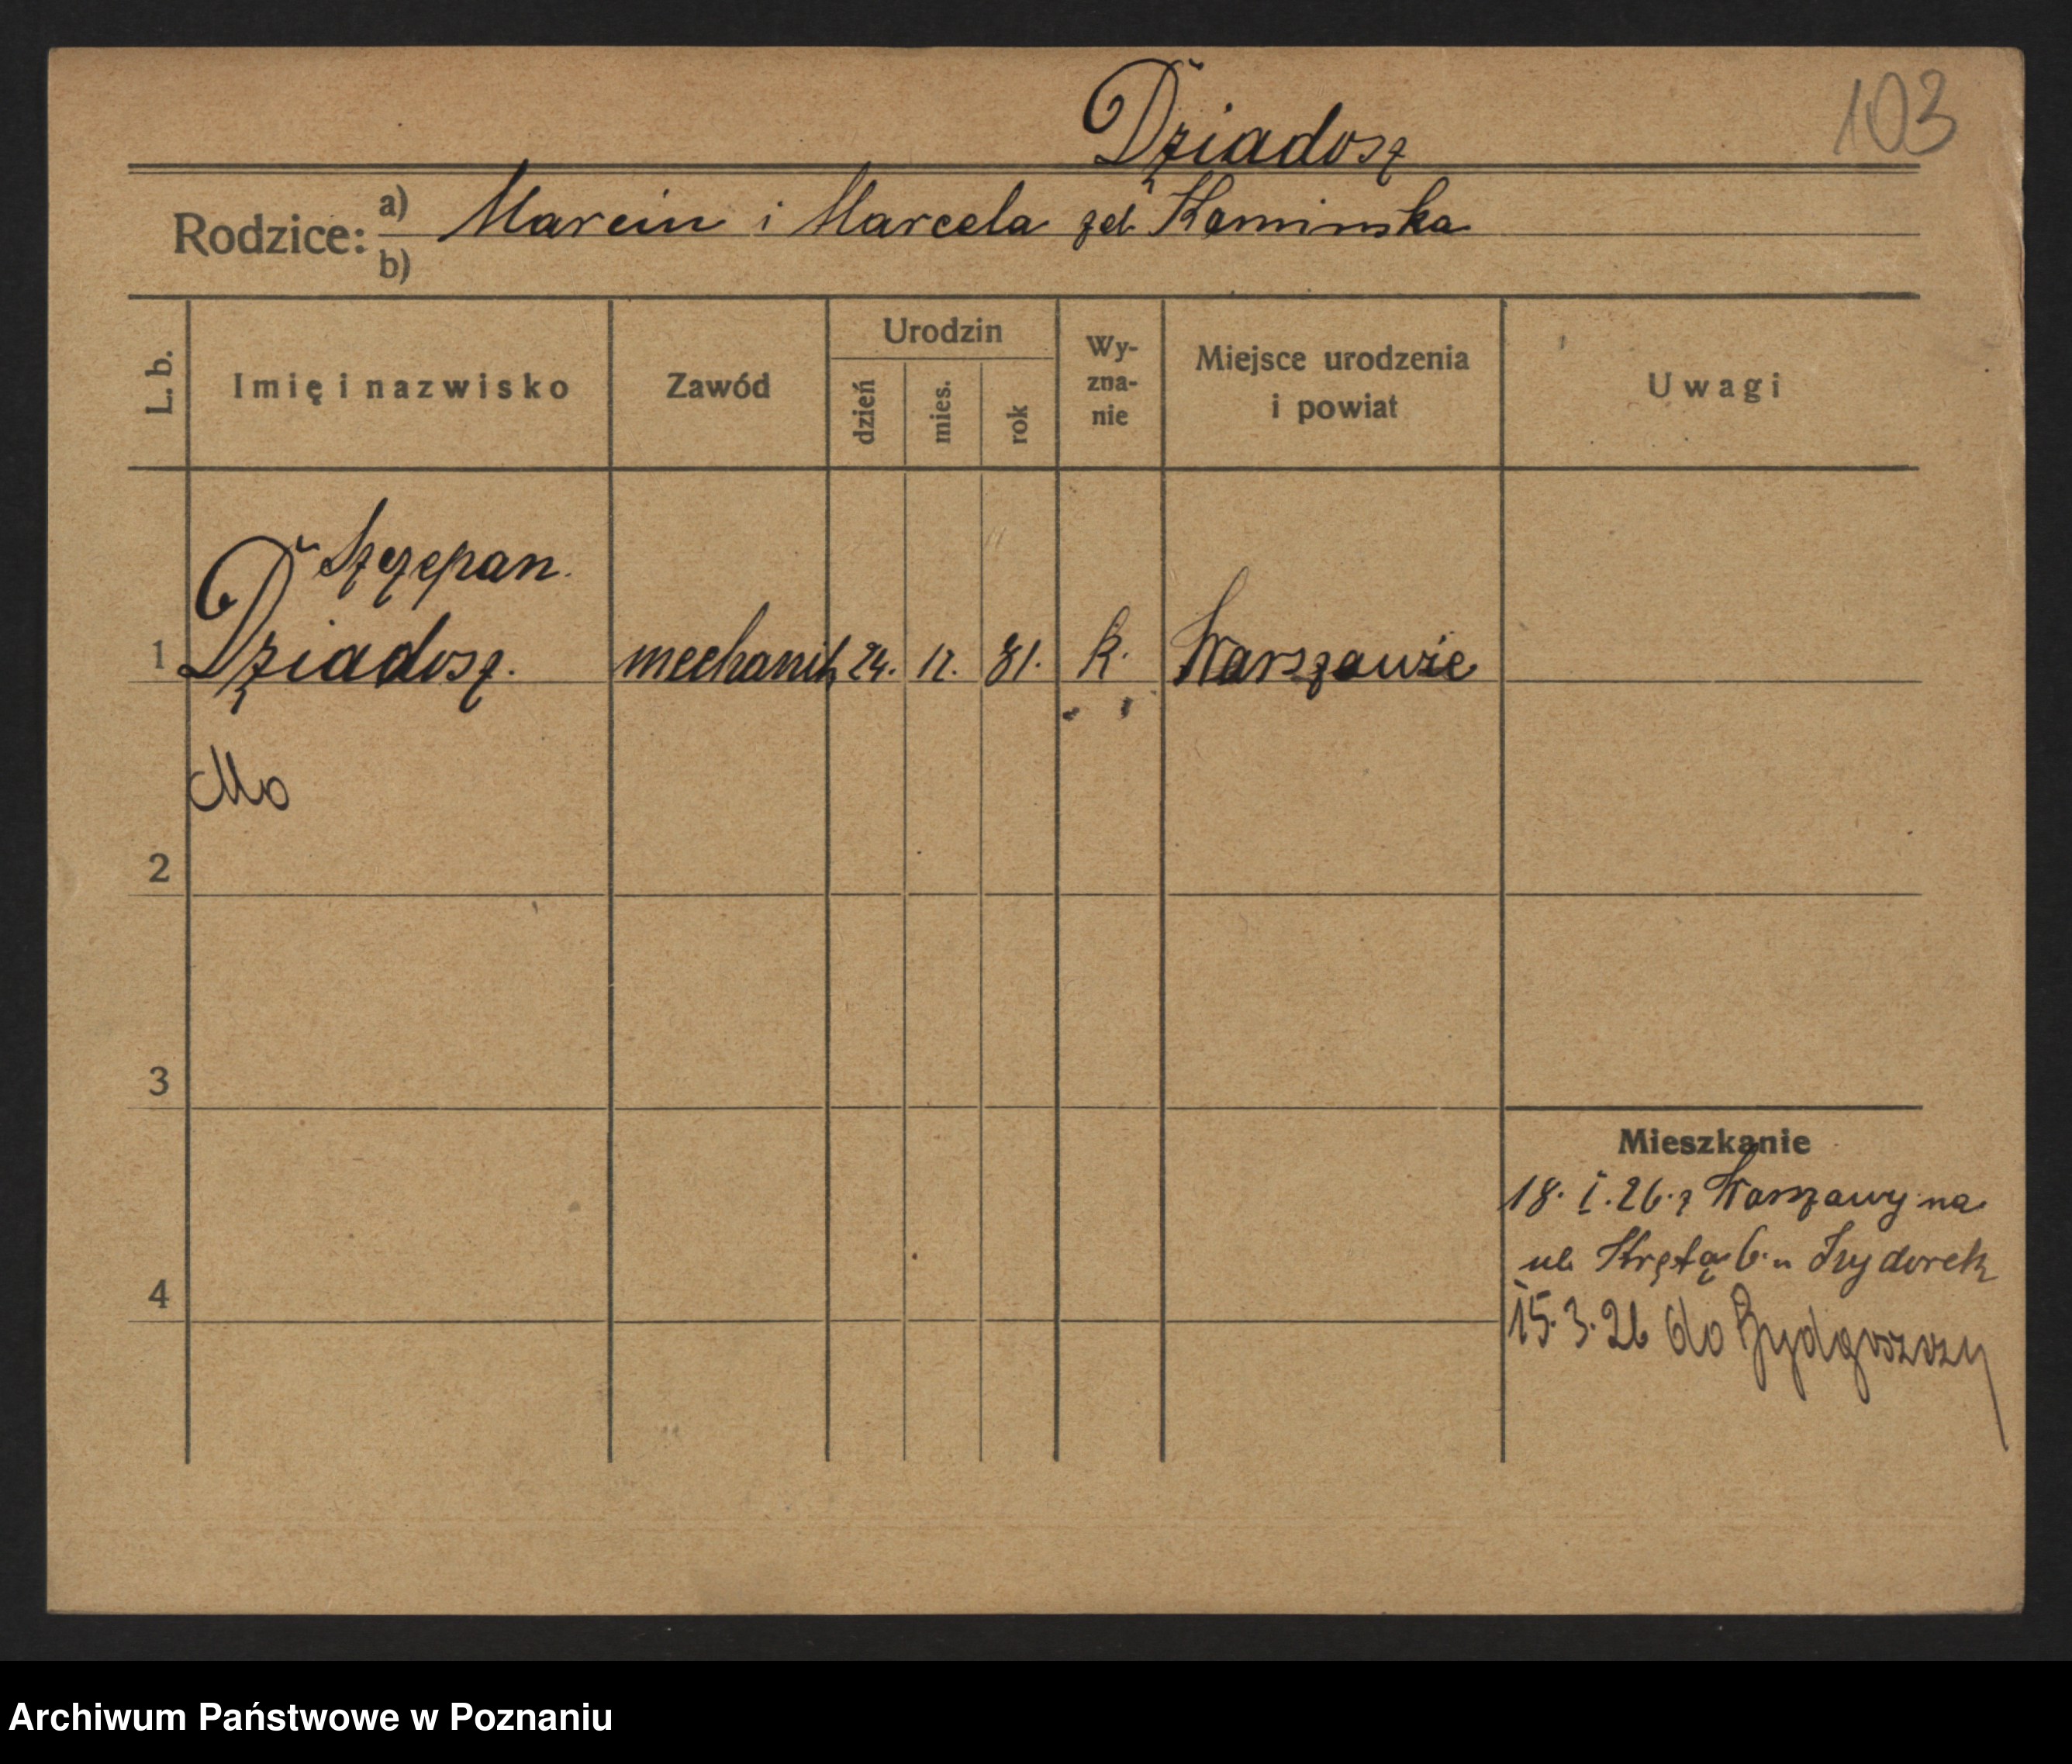 Dziadosz
103
Rodzice: a) Marcin i Marcela zd. Kaminska
b)
L. b.
Imię i nazwisko
Zawód
Urodzin
dzień
mies.
rok
Wy-
zna-
nie
Miejsce urodzenia
i powiat
Uwagi
Szczepan.
1 Dziadosz. mechanik 24. 12. 81. k. Warszawie
2
3
4
Mieszkanie
18. I. 26. z Warszawy na
ul. Krętą 6. u Izydorek
15. 3. 26 do Bydgoszczy
Archiwum Państwowe w Poznaniu